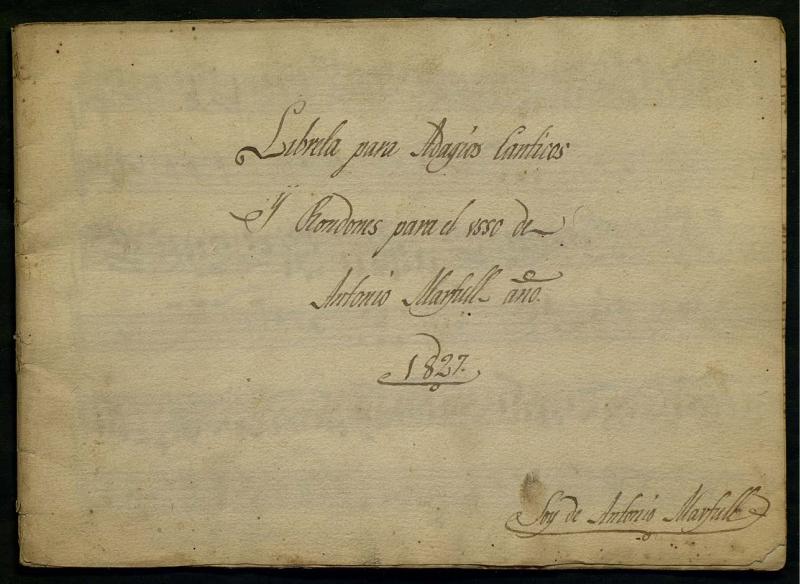 Libreta para Adagios Canticos
y Rondones para el vsso de
Antonio Marfull año.
1827.
Soy de Antonio Marfull